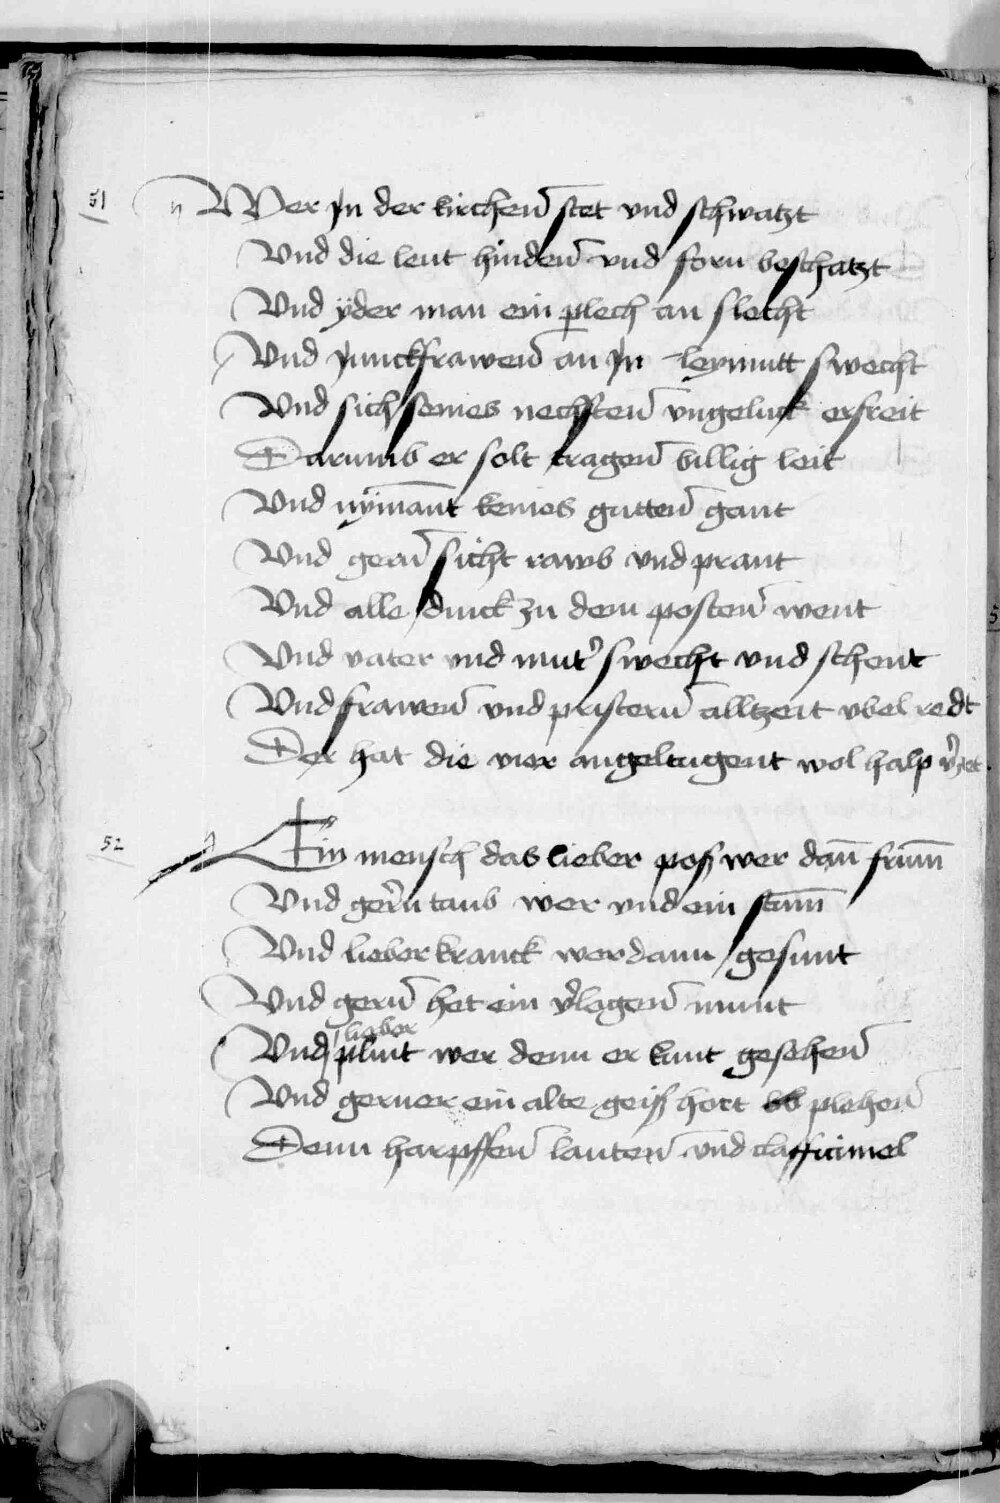 51
Wer Jn der kirchen̄ stet vnd schwatzt
Vnd die leut hinden̄ vnd forn beschatzt
Vnd ÿder man ein plech an slecht
Vnd Junckfrawen̄ an Jn leymutt swecht
Vnd sich seines nechsten̄ vngeluck erfreit
Darumb er solt tragen̄ billig leit
Vnd nÿman̄t keines gutten̄ gant
Vnd gern̄ sicht rawb vnd prant
Vnd alle dinck zu dem posten̄ went
Vnd vater vnd mut' swecht vnd schent
Vnd frawen̄ vnd pristern̄ alltzeit vbel redt
Der hat die vier angeltugent wol halp
52
Ein mensch das lieber poß wer dan̄ frum̄
Vnd gern taub wer vnd ein stum̄
Vnd lieber kranck wer dann gesunt
Vnd gern̄ het ein v'logen̄ munt
lieber
Vnd plint wer denn er kunt gesehen̄
Vnd gerner ein alte geiß hort plehen̄
Denn harpffen̄ lauten̄ vnd clafficimel